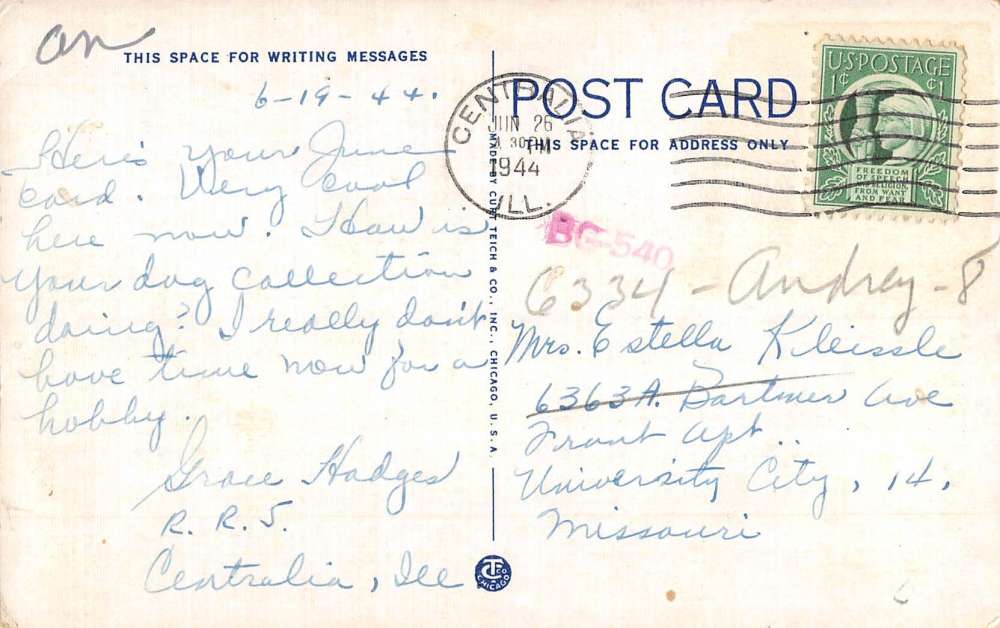 an
THIS SPACE FOR WRITING MESSAGES
6-19-44.
Here's your June
card. Very cool
here now. How is
your dog collection
doing? I really don't
have time now for a
hobby.
Grace Hodges
R. R. 5.
Centralia, Ill
MADE BY CURT TEICH & CO., INC., CHICAGO, U.S.A.
CT CO
CHICAGO
POST CARD
THIS SPACE FOR ADDRESS ONLY
CENTRALIA
JUN 26
30 PM
1944
ILL.
U.S. POSTAGE
1¢
FREEDOM
OF SPEECH
AND RELIGION,
FROM WANT
AND FEAR
BG-540
6334 - Audrey - 8
Mrs. Estella Kleissle
6363A. Bartmer Ave
Front Apt..
University City, 14,
Missouri